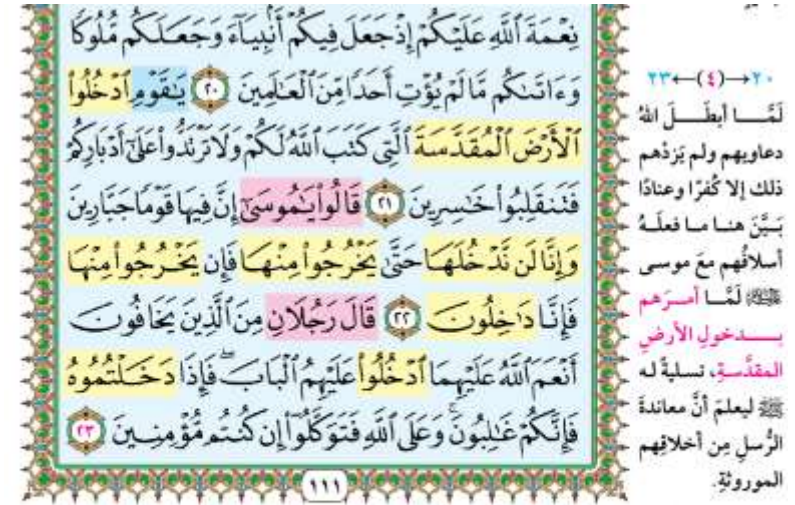 نِعْمَةَ ٱللَّهِ عَلَيْكُمْ إِذْ جَعَلَ فِيكُمْ أَنۢبِيَآءَ وَجَعَلَكُم مُّلُوكًا
وَءَاتَىٰكُم مَّا لَمْ يُؤْتِ أَحَدًا مِّنَ ٱلْعَـٰلَمِينَ ٢٠ يَـٰقَوْمِ ٱدْخُلُوا۟
ٱلْأَرْضَ ٱلْمُقَدَّسَةَ ٱلَّتِى كَتَبَ ٱللَّهُ لَكُمْ وَلَا تَرْتَدُّوا۟ عَلَىٰٓ أَدْبَارِكُمْ
فَتَنقَلِبُوا۟ خَـٰسِرِينَ ٢١ قَالُوا۟ يَـٰمُوسَىٰٓ إِنَّ فِيهَا قَوْمًا جَبَّارِينَ
وَإِنَّا لَن نَّدْخُلَهَا حَتَّىٰ يَخْرُجُوا۟ مِنْهَا فَإِن يَخْرُجُوا۟ مِنْهَا
فَإِنَّا دَٰخِلُونَ ٢٢ قَالَ رَجُلَانِ مِنَ ٱلَّذِينَ يَخَافُونَ
أَنْعَمَ ٱللَّهُ عَلَيْهِمَا ٱدْخُلُوا۟ عَلَيْهِمُ ٱلْبَابَ ۖ فَإِذَا دَخَلْتُمُوهُ
فَإِنَّكُمْ غَـٰلِبُونَ ۚ وَعَلَى ٱللَّهِ فَتَوَكَّلُوٓا۟ إِن كُنتُم مُّؤْمِنِينَ ٢٣
١١١
٢٠→(٤)←٢٣
لَمَّا أبطَلَ اللهُ
دعاويهم ولم يَزدْهم
ذلك إلا كُفرًا وعنادًا
بَيَّنَ هنا ما فعلَهُ
أسلافُهم معَ موسى
ﷺ لَمَّا أمرَهم
بدخولِ الأرضِ
المقدَّسةِ، تسليةً له
ﷺ ليعلمَ أنَّ معاندةَ
الرُّسلِ مِن أخلاقِهم
الموروثةِ.